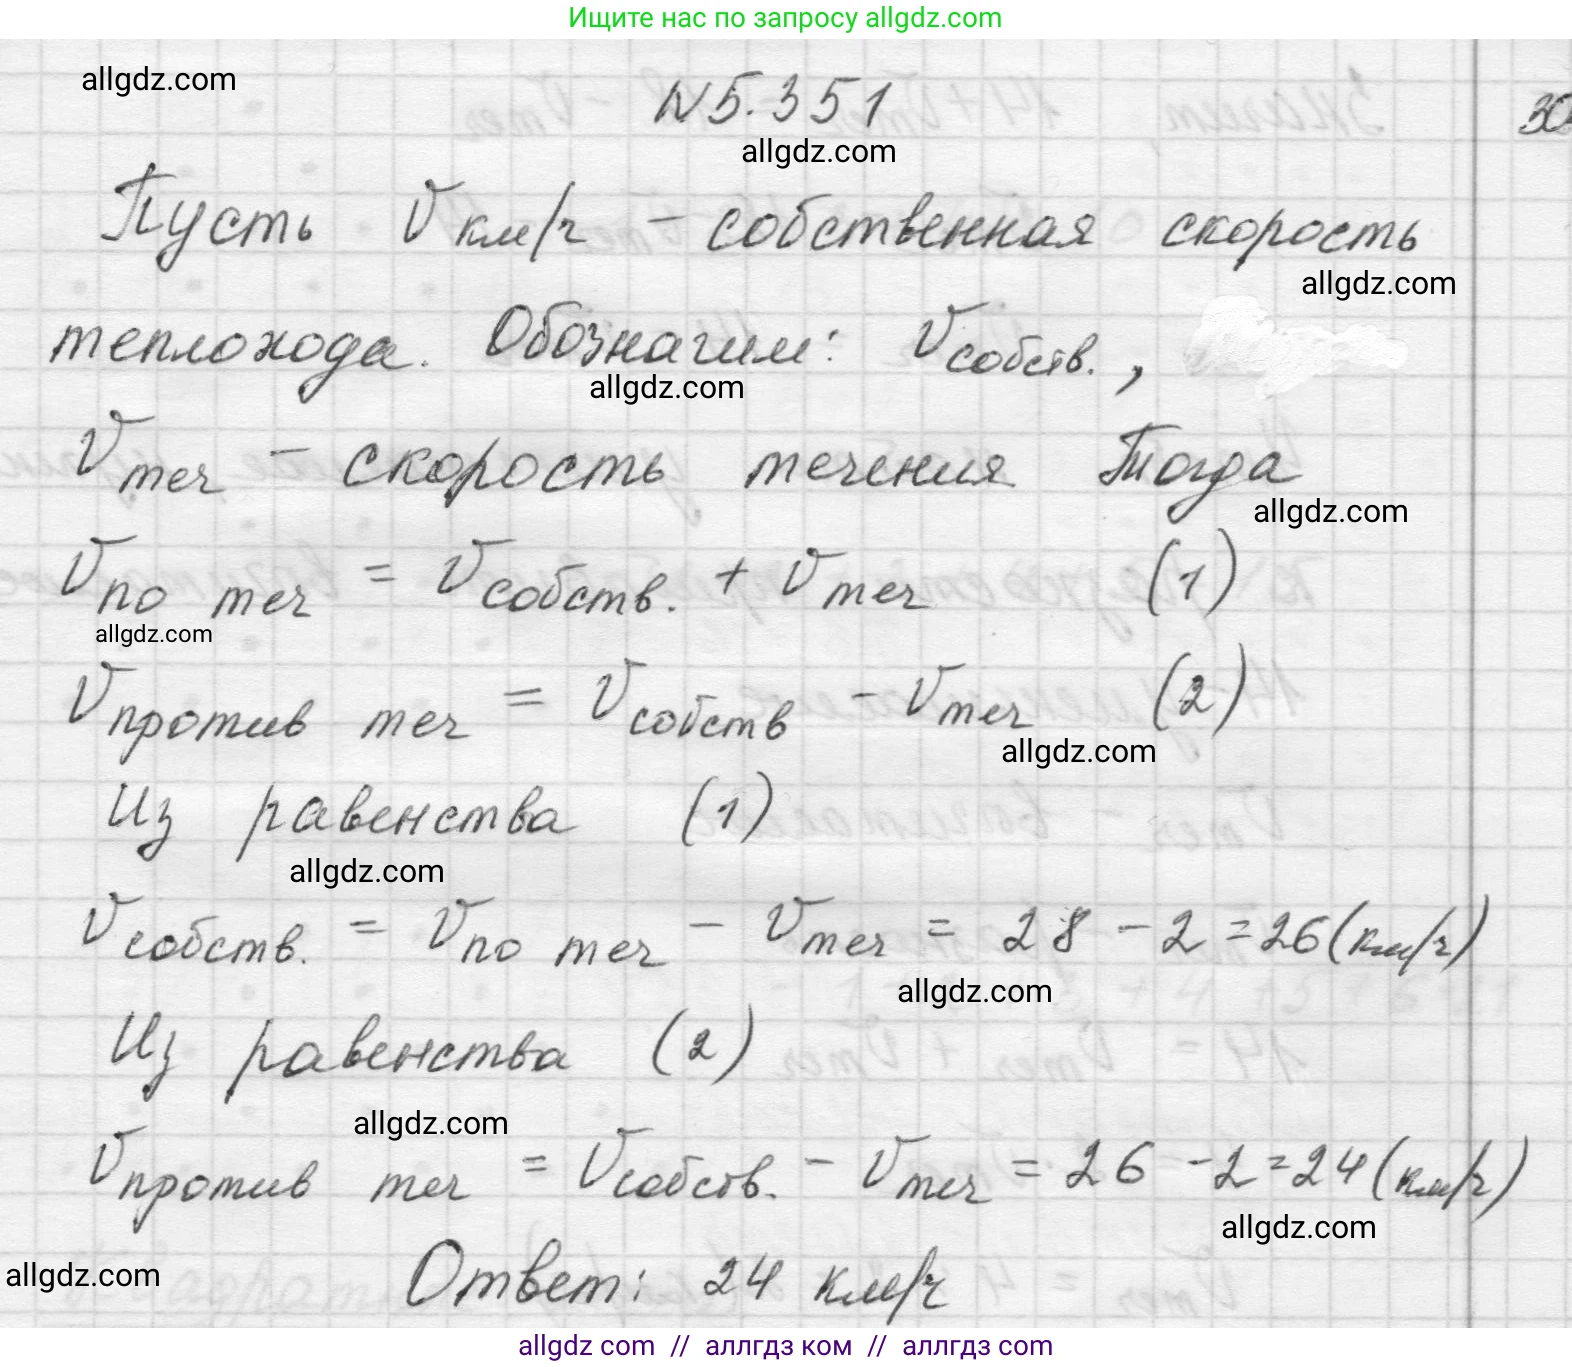 Ищите нас по запросу allgdz.com
allgdz.com
N 5.351
30
allgdz.com
Пусть V км/ч - собственная скорость
allgdz.com
теплохода. Обозначим: V собств.,
allgdz.com
V теч - скорость течения Тогда
allgdz.com
V по теч = V собств. + V теч (1)
allgdz.com
V против теч = V собств - V теч (2)
allgdz.com
Из равенства (1)
allgdz.com
V собств. = V по теч - V теч = 28 - 2 = 26 (км/ч)
allgdz.com
Из равенства (2)
allgdz.com
V против теч = V собств. - V теч = 26 - 2 = 24 (км/ч)
allgdz.com
allgdz.com
Ответ: 24 км/ч
allgdz com // аллгдз ком // аллгдз com